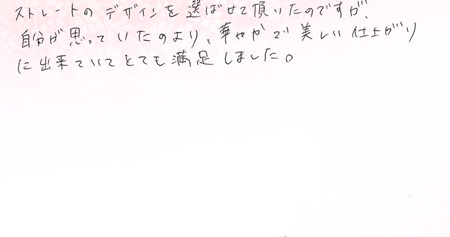 ストレートのデザインを選ばせて頂いたのですが、
自分が思っていたのより、華やかで美しい仕上がり
に出来ていてとても満足しました。